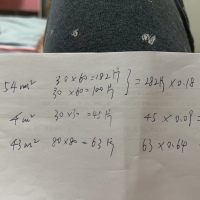 30×60=182片
54m² 30×60=100片 }=282片×0.18
4m² 30×30=45片 45×0.09=
43m² 80×80=63片 63×0.64